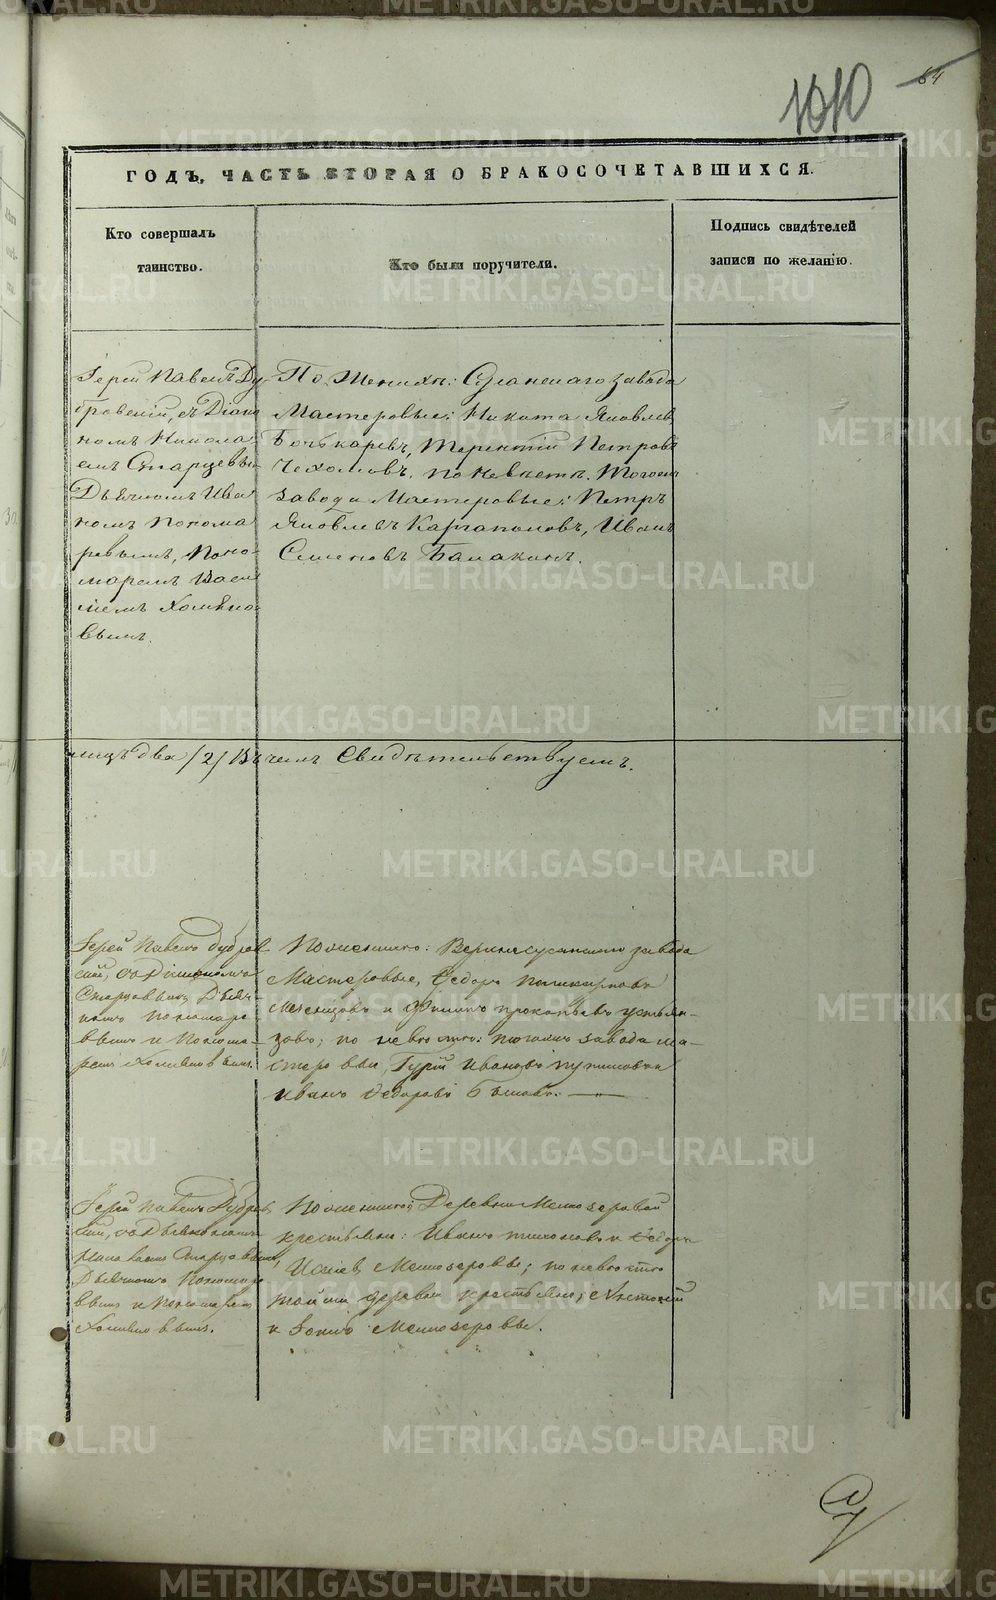 1010
64
ГОДЪ, ЧАСТЬ ВТОРАЯ О БРАКОСОЧЕТАВШИХСЯ.
Кто совершалъ
таинство.
Кто были поручители.
Подпись свидѣтелей
записи по желанію.
Іерей Павелъ Ду-
бровскій, съ Діако
номъ Никола
емъ Старцевы
Дьячкомъ Ива
номъ Понома
ревымъ, Поно-
маремъ Васи
ліемъ Хомяко
вымъ.
По Женихѣ: Сусанскаго завода
Мастеровые: Никита Яковлевъ
Бочкаревъ, Терентій Петровъ
Чехомовъ. По Невѣстѣ, Тогоже
завода Мастеровые: Петръ
Яковлевъ Каргаполовъ, Иванъ
Семеновъ Балакинъ.
два /2/ Въ чемъ Свидѣтельствуемъ.
Іерей Павелъ Дубров
скій, съ Діакономъ
Старцовымъ Дьяч-
комъ Пономаре
вымъ и Понома-
ремъ Хомяковымъ.
По женихѣ: Верхнесусанскаго завода
Мастеровые, Ѳедоръ
и Филипъ Прокопьевъ Устьян-
зовъ; по невѣстѣ: тогожъ завода ма-
стеровые, Гурій Ивановъ
Иванъ Ѳедоровъ
Іерей Павелъ Дубров
скій, съ Дьякономъ
Старцовымъ,
Дьячкомъ Понома
вымъ и Пономаремъ
Хомяковымъ.
По женихѣ; Деревни Мелкозеровой
крестьяне: Иванъ и Ѳедоръ
Исаевъ Мелкозеровы; по невѣстѣ
тойже деревни крестьяне;
и Мелкозеровы.